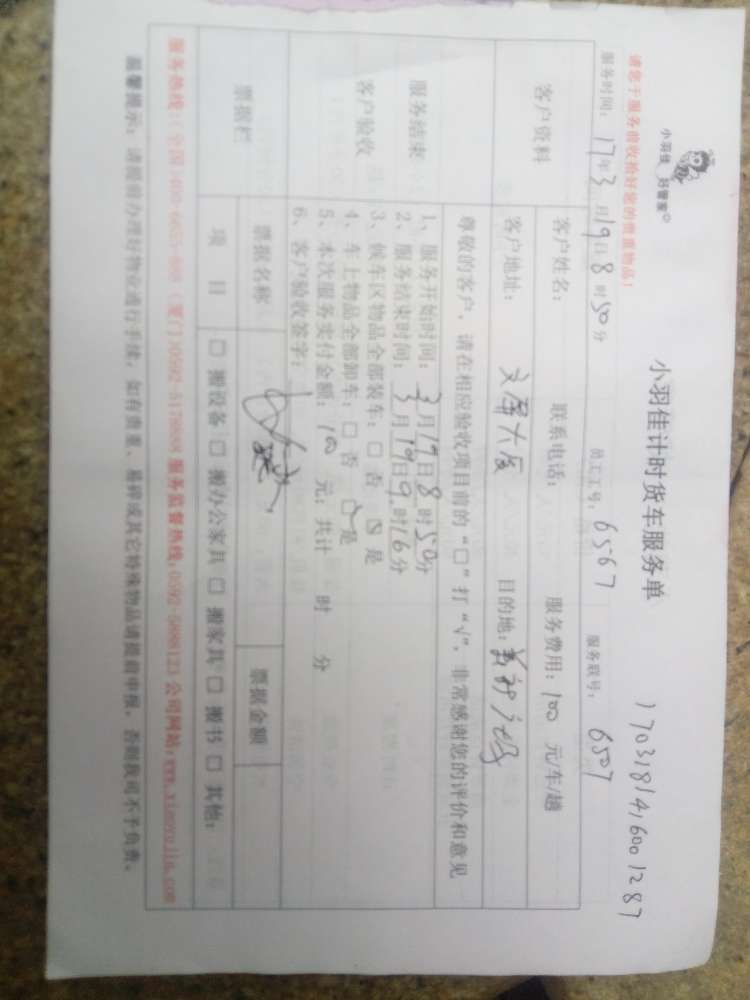 小羽佳 好管家©
小羽佳计时货车服务单
1703181416001287
请您于服务前收拾好您的贵重物品！
服务时间：17年3月19日8时50分 员工工号：6567 服务联号：6507
客户资料
客户姓名： 联系电话： 服务费用：100 元/车/趟
客户地址： 文屏大厦 目的地：
尊敬的客户，请在相应验收项目前的“□”打“√”，非常感谢您的评价和意见
服务结束
客户验收
1、服务开始时间：3月19日8时50分
2、服务结束时间：3月19日9时16分
3、候车区物品全部装车：□ 否 ☑ 是
4、车上物品全部卸车：□ 否 ☑ 是
5、本次服务实付金额：100 元；共计 时 分
6、客户验收签字：
票据栏
票据名称 票据金额
项 目 □ 搬设备 □ 搬办公家具 □ 搬家具 □ 搬书 □ 其他：
服务热线：(全国)400-6655-888 (厦门)0592-5179888 服务监督热线：0592-5888123 公司网站：www.xiaoyujia.com
温馨提示：请提前办理好物业通行手续，如有贵重、易碎或其它特殊物品请提前申报，否则我司不予负责。